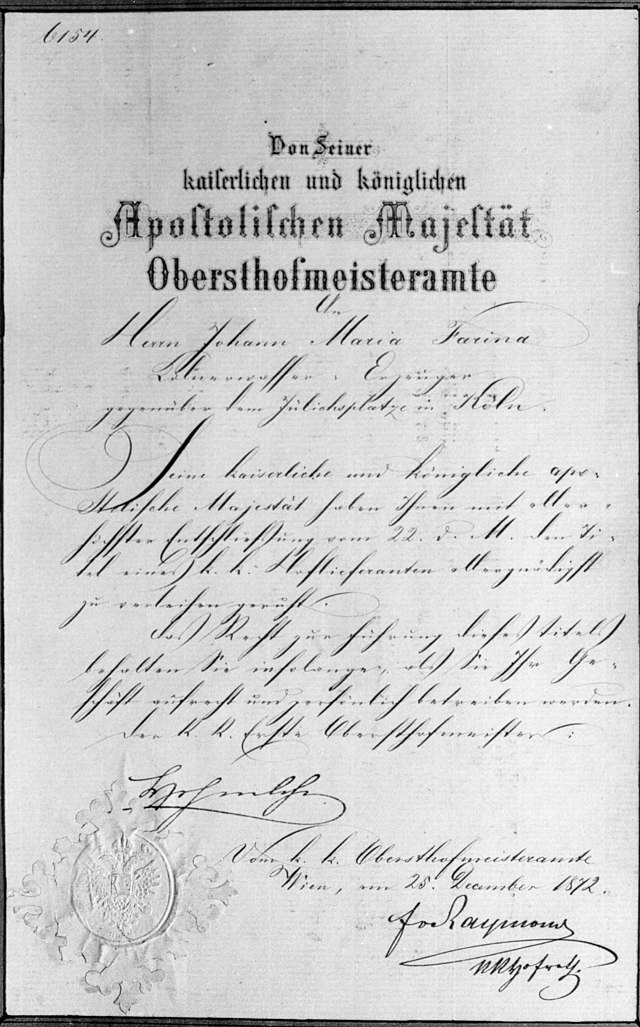 6154.
Von Seiner
kaiserlichen und königlichen
Apostolischen Majestät
Obersthofmeisteramte
An
Herrn Johann Maria Farina
Kölnerwasser-Erzeuger
gegenüber dem Jülichsplatze in Köln.
Seine kaiserliche und königliche apo-
stolische Majestät haben Ihnen mit aller-
höchster Entschließung vom 22. d. M. den Ti-
tel eines k. k. Hoflieferanten allergnädigst
zu verleihen geruht.
Das Recht zur Führung dieses Titels
behalten Sie insolange, als Sie Ihr Ge-
schäft aufrecht und persönlich betreiben werden.
Der K. K. Erste Obersthofmeister:
Hohenlohe
Vom k. k. Obersthofmeisteramte
Wien, am 25. December 1872.
Raymond
KKHofrath.